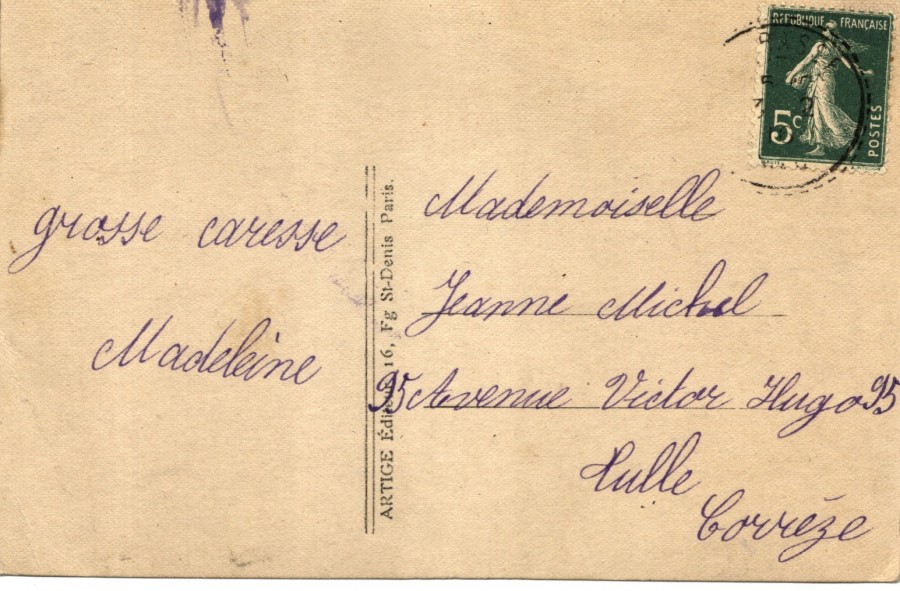 RÉPUBLIQUE FRANÇAISE
5c
POSTES
grosse caresse
Madeleine
ARTIGE Éditeur 16, Fg St-Denis Paris.
Mademoiselle
Jeanne Michel
95 Avenue Victor Hugo 95
Tulle
Corrèze